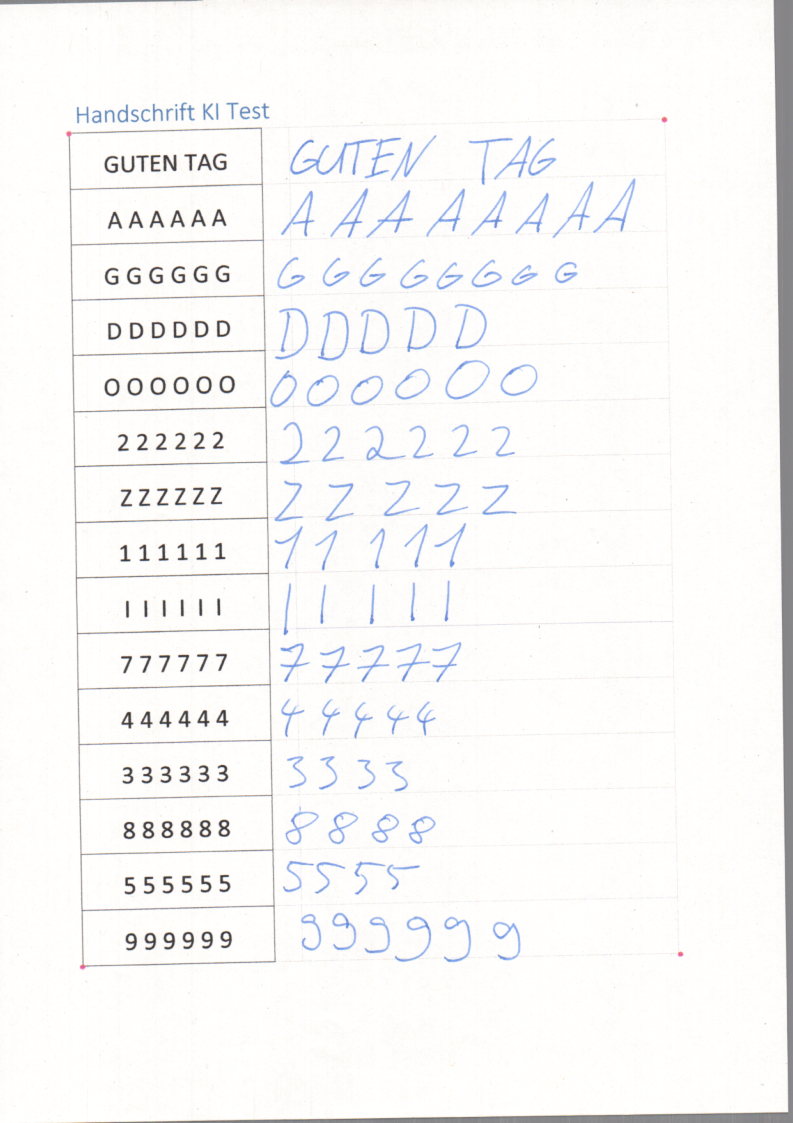 Handschrift KI Test
GUTEN TAG GUTEN TAG
A A A A A A A A A A A A A A
G G G G G G G G G G G G G G
D D D D D D D D D D D
O O O O O O O O O O O O
2 2 2 2 2 2 2 2 2 2 2 2
Z Z Z Z Z Z Z Z Z Z Z
1 1 1 1 1 1 1 1 1 1 1
I I I I I I I I I I I
7 7 7 7 7 7 7 7 7 7 7
4 4 4 4 4 4 4 4 4 4 4
3 3 3 3 3 3 3 3 3 3
8 8 8 8 8 8 8 8 8 8
5 5 5 5 5 5 5 5 5 5
9 9 9 9 9 9 9 9 9 9 9 9